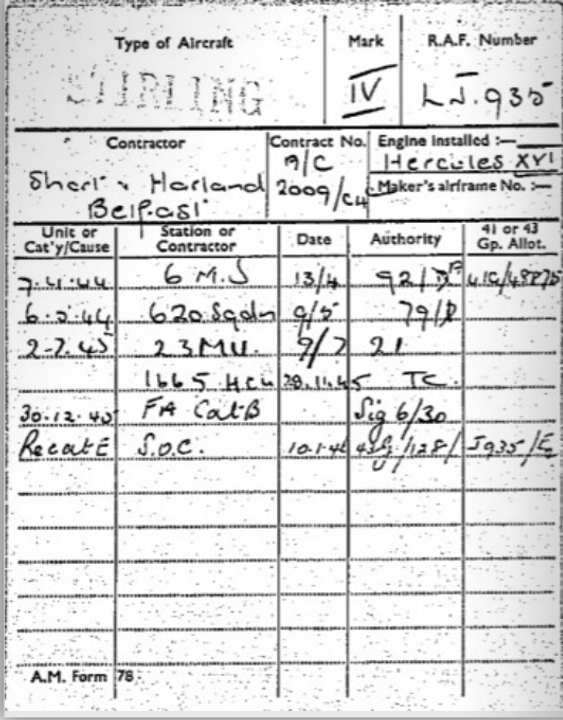 Type of Aircraft Mark R.A.F. Number
STIRLING IV LJ.935
Contractor Contract No. Engine installed :—
A/C Hercules XVI
Short & Harland 2009/C4 Maker's airframe No. :—
Belfast
Unit or Cat'y/Cause Station or Contractor Date Authority 41 or 43 Gp. Allot.
6 M.S 13/4
620 Sqdn 9/5
2-7.45 23 MU. 9/7 21
1665 HCU 28.11.45 TC.
30.12.45 FA Cat B Sig 6/30
Recat E S.O.C. 10.1.46 J935/E
A.M. Form 78